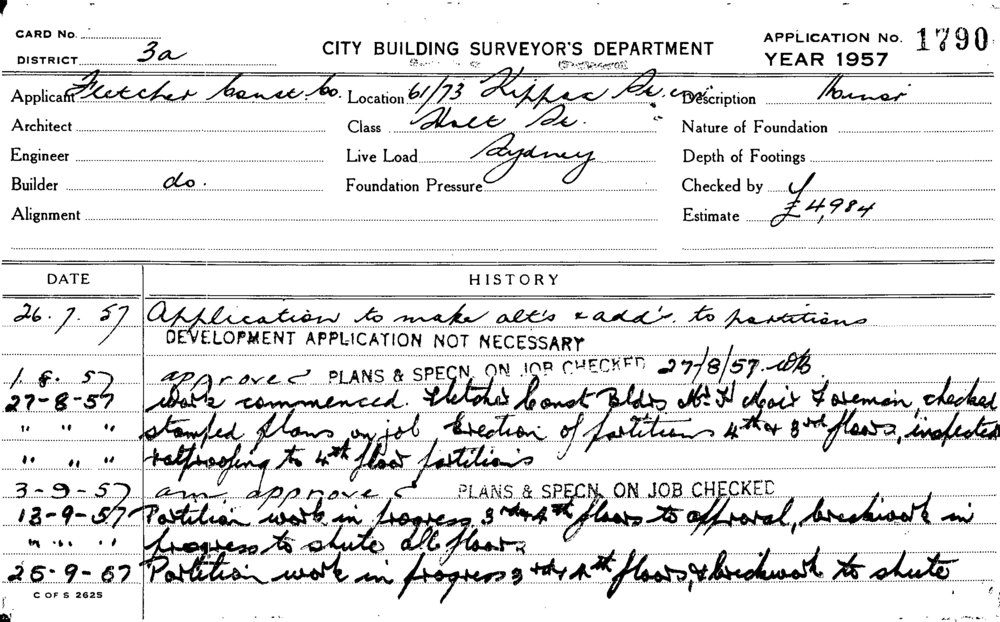 CARD No.
DISTRICT 3a
CITY BUILDING SURVEYOR'S DEPARTMENT
APPLICATION No. 1790
YEAR 1957
Applicant Fletcher Const. Co. Location 61/73 Kippax St. Description Minor
Architect Class Holt St. Nature of Foundation
Engineer Live Load Sydney Depth of Footings
Builder do. Foundation Pressure Checked by
Alignment Estimate £4,984
DATE HISTORY
26.7.57 Application to make alt's & add's. to partitions
DEVELOPMENT APPLICATION NOT NECESSARY
1.8.57 approved PLANS & SPECN. ON JOB CHECKED 27/8/57
27-8-57 Work commenced. Fletcher Const Bldrs Mr. Moir Foreman, checked
" " " stamped plans on job Erection of partitions 4th & 3rd floors, inspected
" " " ratproofing to 4th floor partitions
3-9-57 am. approved PLANS & SPECN. ON JOB CHECKED
13-9-57 Partition work in progress 3rd & 4th floors to approval, brickwork in
" " " progress to chute all floors
25-9-57 Partition work in progress 3rd & 4th floors, & brickwork to chute
C OF S 2625